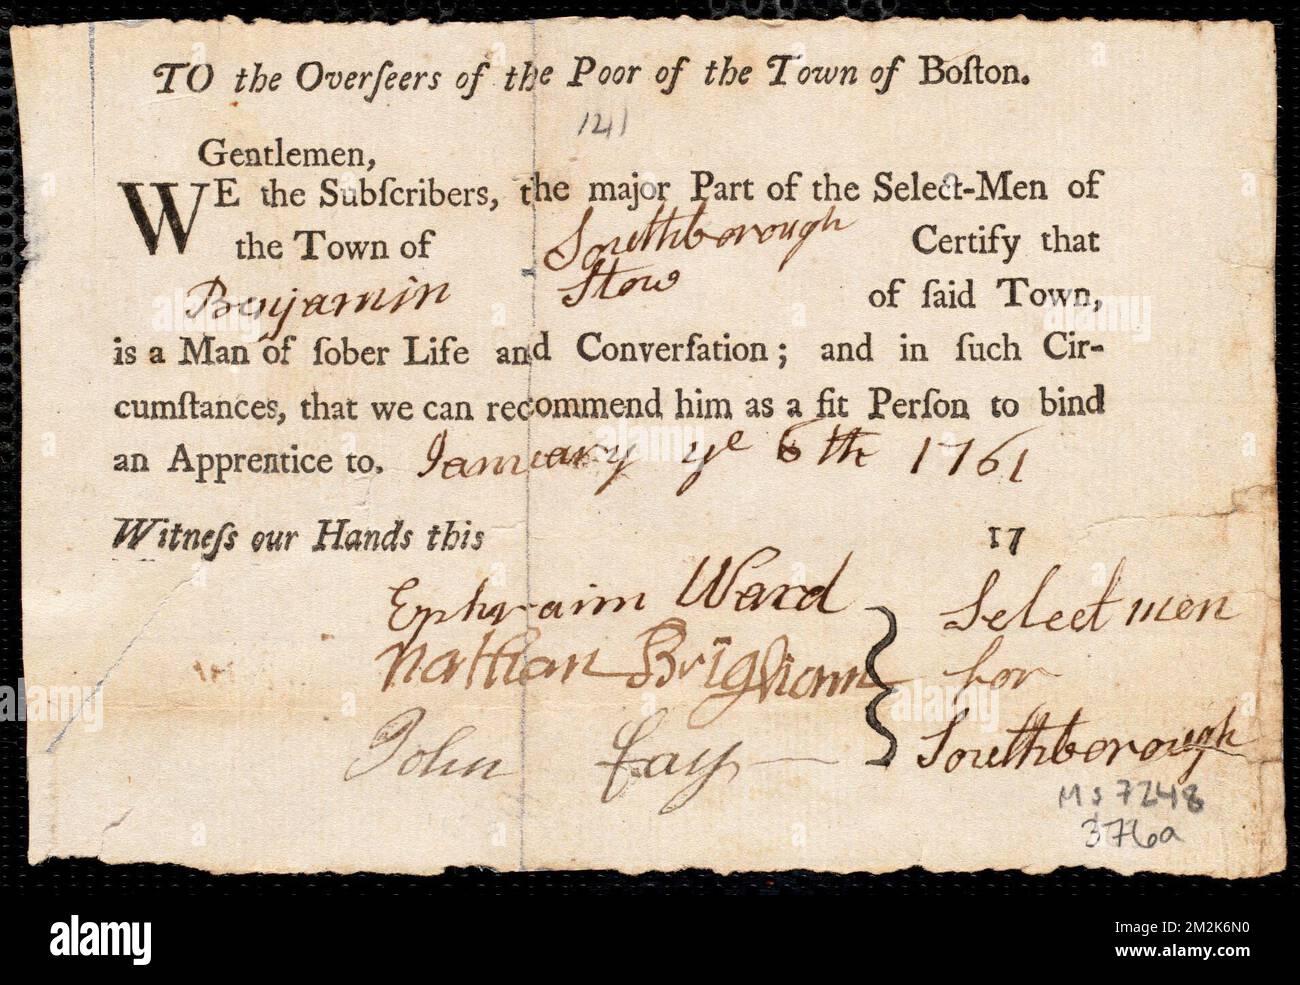 TO the Overſeers of the Poor of the Town of Boſton.
121
Gentlemen,
WE the Subſcribers, the major Part of the Select-Men of
the Town of Southborough Certify that
Benjamin Stow of ſaid Town,
is a Man of ſober Life and Converſation; and in ſuch Cir-
cumſtances, that we can recommend him as a fit Perſon to bind
an Apprentice to. January ye 6th 1761
Witneſs our Hands this 17
Ephraim Ward
Nathan Brigham
John fay
Select men
for
Southborough
Ms 7248
376a
alamy
Image ID: 2M2K6N0
www.alamy.com